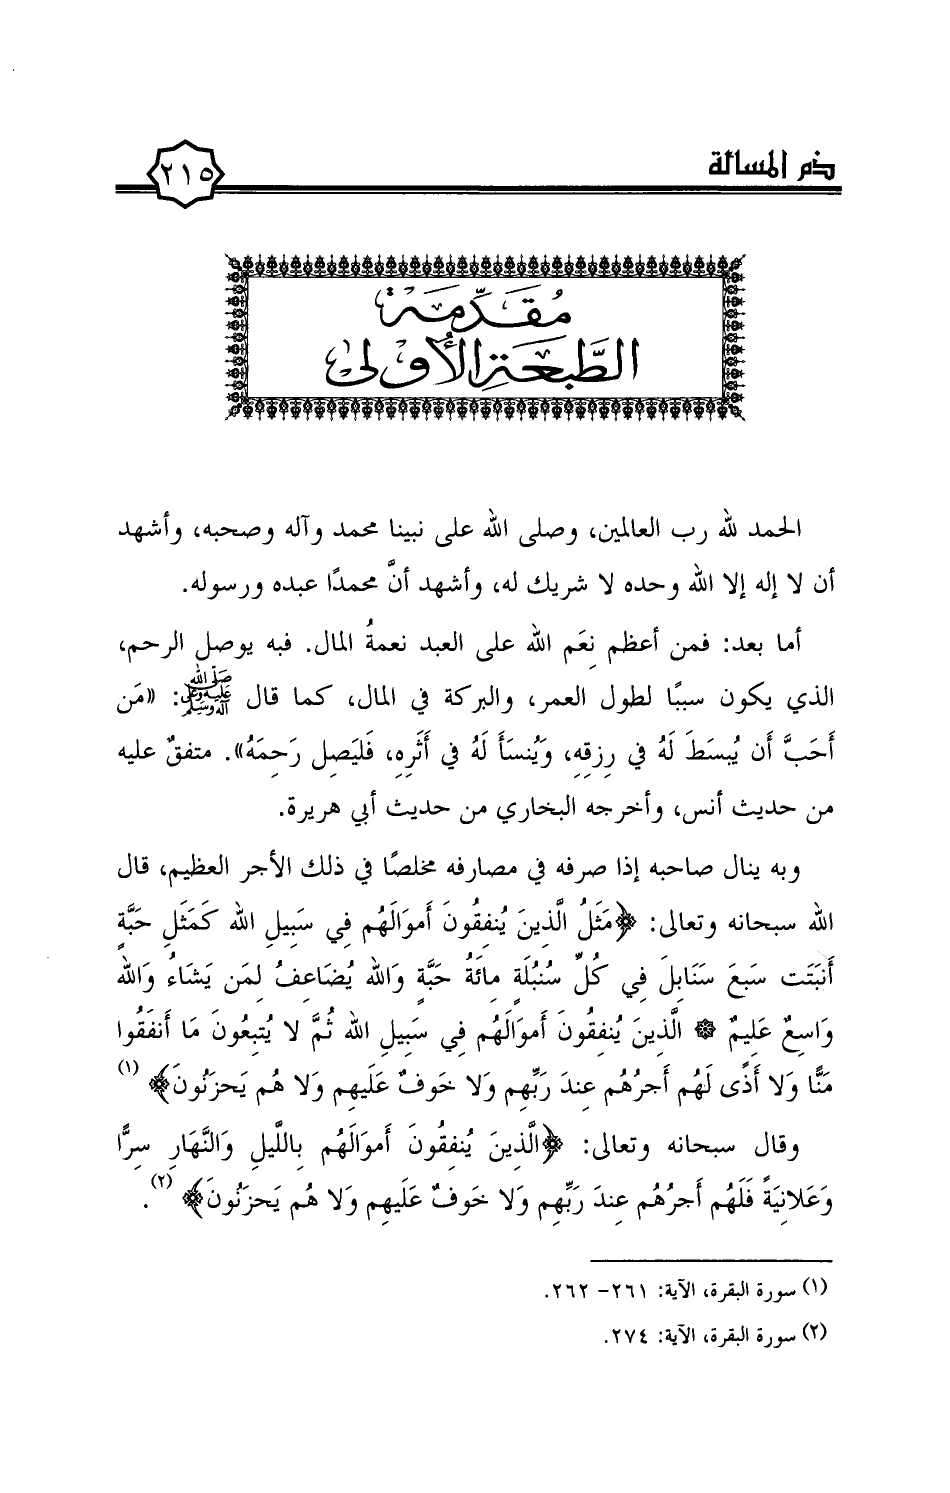 ذم المسالة
٢١٥
مُقَدِّمَة
الطَّبْعَةِ الأُوْلَى
الحمد لله رب العالمين، وصلى الله على نبينا محمد وآله وصحبه، وأشهد
أن لا إله إلا الله وحده لا شريك له، وأشهد أنَّ محمدًا عبده ورسوله.
أما بعد: فمن أعظم نِعَم الله على العبد نعمةُ المال. فبه يوصل الرحم،
الذي يكون سببًا لطول العمر، والبركة في المال، كما قال صلى الله عليه وعلى آله وسلم: «مَن
أَحَبَّ أَن يُبسَطَ لَهُ في رِزقِه، وَيُنسَأَ لَهُ في أَثَرِه، فَليَصِل رَحِمَهُ». متفقٌ عليه
من حديث أنس، وأخرجه البخاري من حديث أبي هريرة.
وبه ينال صاحبه إذا صرفه في مصارفه مخلصًا في ذلك الأجر العظيم، قال
الله سبحانه وتعالى: ﴿مَثَلُ الَّذِينَ يُنفِقُونَ أَموَالَهُم فِي سَبِيلِ الله كَمَثَلِ حَبَّةٍ
أَنبَتَت سَبعَ سَنَابِلَ فِي كُلِّ سُنبُلَةٍ مِائَةُ حَبَّةٍ وَالله يُضَاعِفُ لِمَن يَشَاءُ وَالله
وَاسِعٌ عَلِيمٌ ۞ الَّذِينَ يُنفِقُونَ أَموَالَهُم فِي سَبِيلِ الله ثُمَّ لا يُتبِعُونَ مَا أَنفَقُوا
مَنًّا وَلا أَذًى لَهُم أَجرُهُم عِندَ رَبِّهِم وَلا خَوفٌ عَلَيهِم وَلا هُم يَحزَنُونَ﴾ (١)
وقال سبحانه وتعالى: ﴿الَّذِينَ يُنفِقُونَ أَموَالَهُم بِاللَّيلِ وَالنَّهَارِ سِرًّا
وَعَلانِيَةً فَلَهُم أَجرُهُم عِندَ رَبِّهِم وَلا خَوفٌ عَلَيهِم وَلا هُم يَحزَنُونَ﴾ (٢).
(١) سورة البقرة، الآية: ٢٦١- ٢٦٢.
(٢) سورة البقرة، الآية: ٢٧٤.